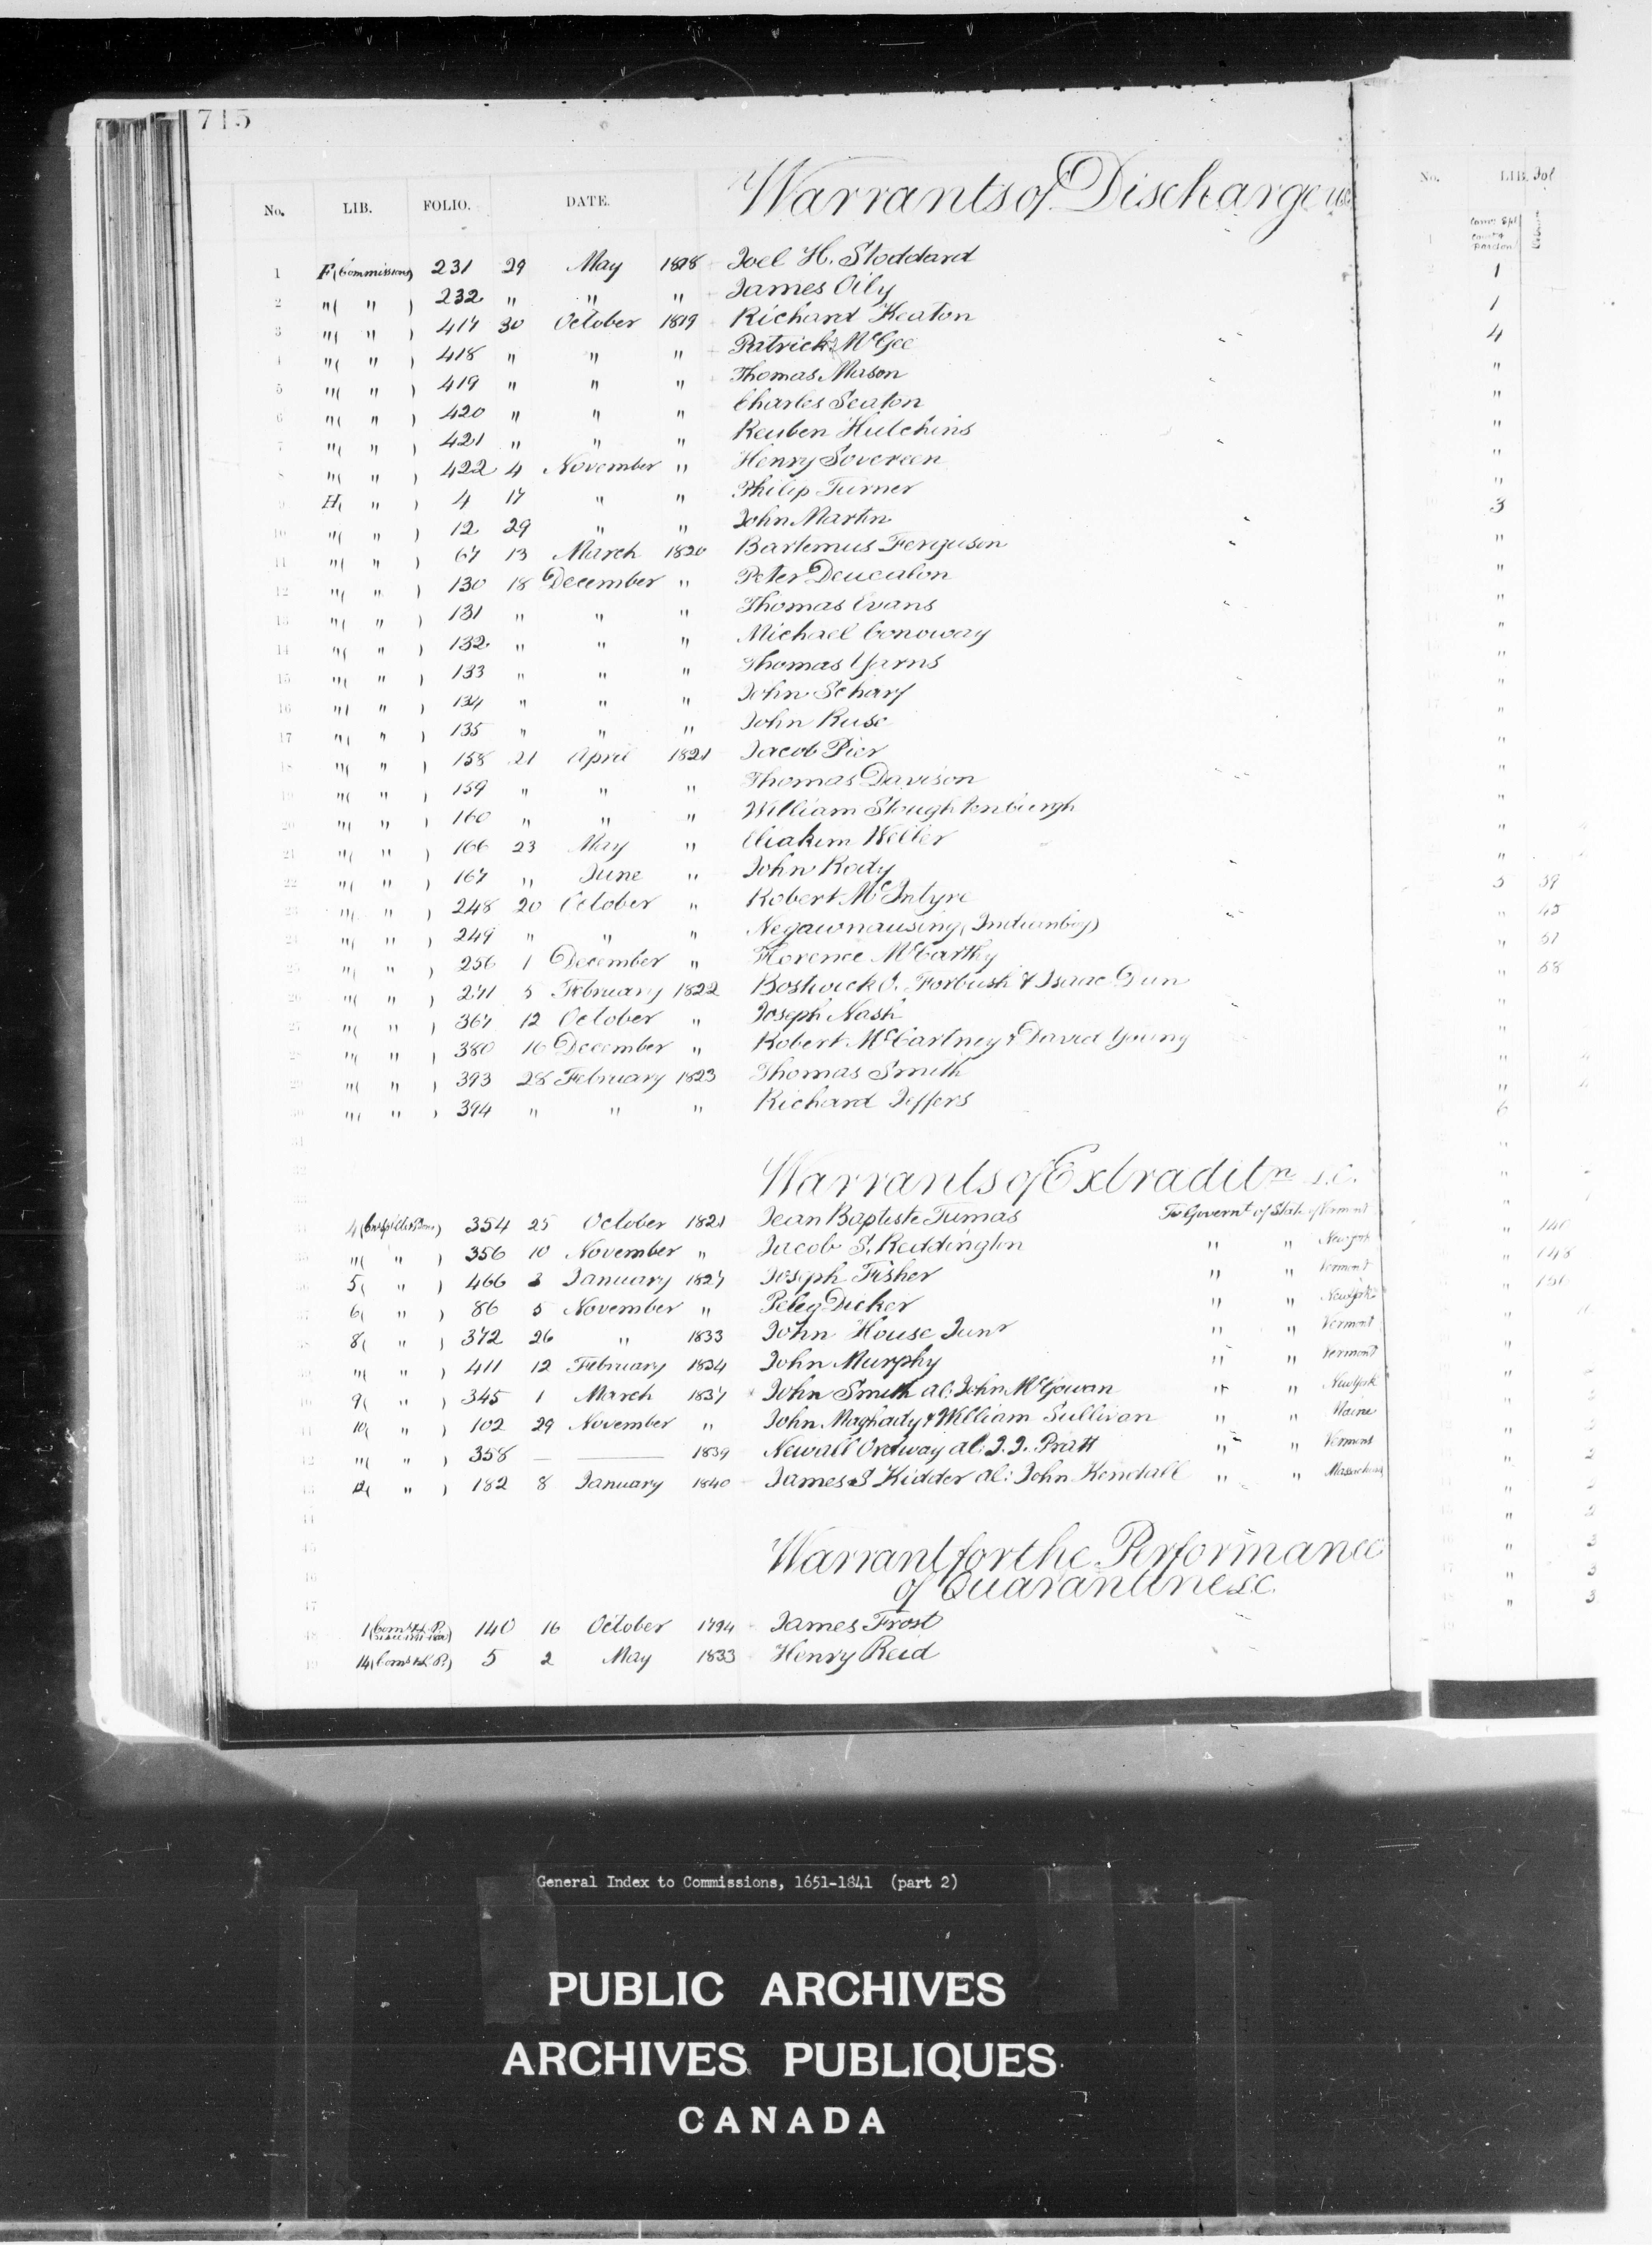 715
No. LIB. FOLIO. DATE. Warrants of Discharge U.C.
1 F (Commissions) 231 29 May 1818 Joel H. Stoddard
2 "( " ) 232 " " " James Oily
3 "( " ) 417 30 October 1819 Richard Keaton
4 "( " ) 418 " " " Patrick McGee
5 "( " ) 419 " " " Thomas Mason
6 "( " ) 420 " " " Charles Seaton
7 "( " ) 421 " " " Reuben Hutchins
8 "( " ) 422 4 November " Henry Sovereen
9 H( " ) 4 17 " " Philip Turner
10 "( " ) 12 29 " " John Martin
11 "( " ) 67 13 March 1820 Bartemus Ferguson
12 "( " ) 130 18 December " Peter Deucalon
13 "( " ) 131 " " " Thomas Evans
14 "( " ) 132 " " " Michael Conoway
15 "( " ) 133 " " " Thomas Yarns
16 "( " ) 134 " " " John Scharf
17 "( " ) 135 " " " John Ruse
18 "( " ) 158 21 April 1821 Jacob Pier
19 "( " ) 159 " " " Thomas Davison
20 "( " ) 160 " " " William Stoughtenburgh
21 "( " ) 166 23 May " Eliakim Weller
22 "( " ) 167 " June " John Rody
23 "( " ) 248 20 October " Robert McIntyre
24 "( " ) 249 " " " Negawnausing (Indian boy)
25 "( " ) 256 1 December " Florence McCarthy
26 "( " ) 271 5 February 1822 Bostwick O. Forbush & Isaac Dun
27 "( " ) 367 12 October " Joseph Nash
28 "( " ) 380 16 December " Robert McCartney & David Young
29 "( " ) 393 28 February 1823 Thomas Smith
30 "( " ) 394 " " " Richard Jeffers
31
32 Warrants of Extraditn L.C.
4 354 25 October 1821 Jean Baptiste Tumas To Governt of State of Vermont
"( " ) 356 10 November " Jacob S. Reddington " " New York
5( " ) 466 3 January 1827 Joseph Fisher " " Vermont
6( " ) 86 5 November " Peleg Dicker " " New York
8( " ) 372 26 " 1833 John House Junr " " Vermont
"( " ) 411 12 February 1834 John Murphy " " Vermont
9( " ) 345 1 March 1837 John Smith al: John McGowan " " New York
10( " ) 102 29 November " John Maghady & William Sullivan " " Maine
"( " ) 358 — — 1839 Newall Ordway al: J. J. Pratt " " Vermont
12( " ) 182 8 January 1840 James S Kidder al: John Kendall " " Massachus
44
45 Warrant for the Performance
46 of Quarantine L.C.
47
48 1 140 16 October 1794 James Frost
49 14 5 2 May 1833 Henry Reid
No. LIB. Fol
1
1
4
"
"
"
"
"
3
"
"
"
"
"
"
5 39
" 45
" 51
" 58
6
" 148
" 156
General Index to Commissions, 1651-1841 (part 2)
PUBLIC ARCHIVES
ARCHIVES PUBLIQUES
CANADA